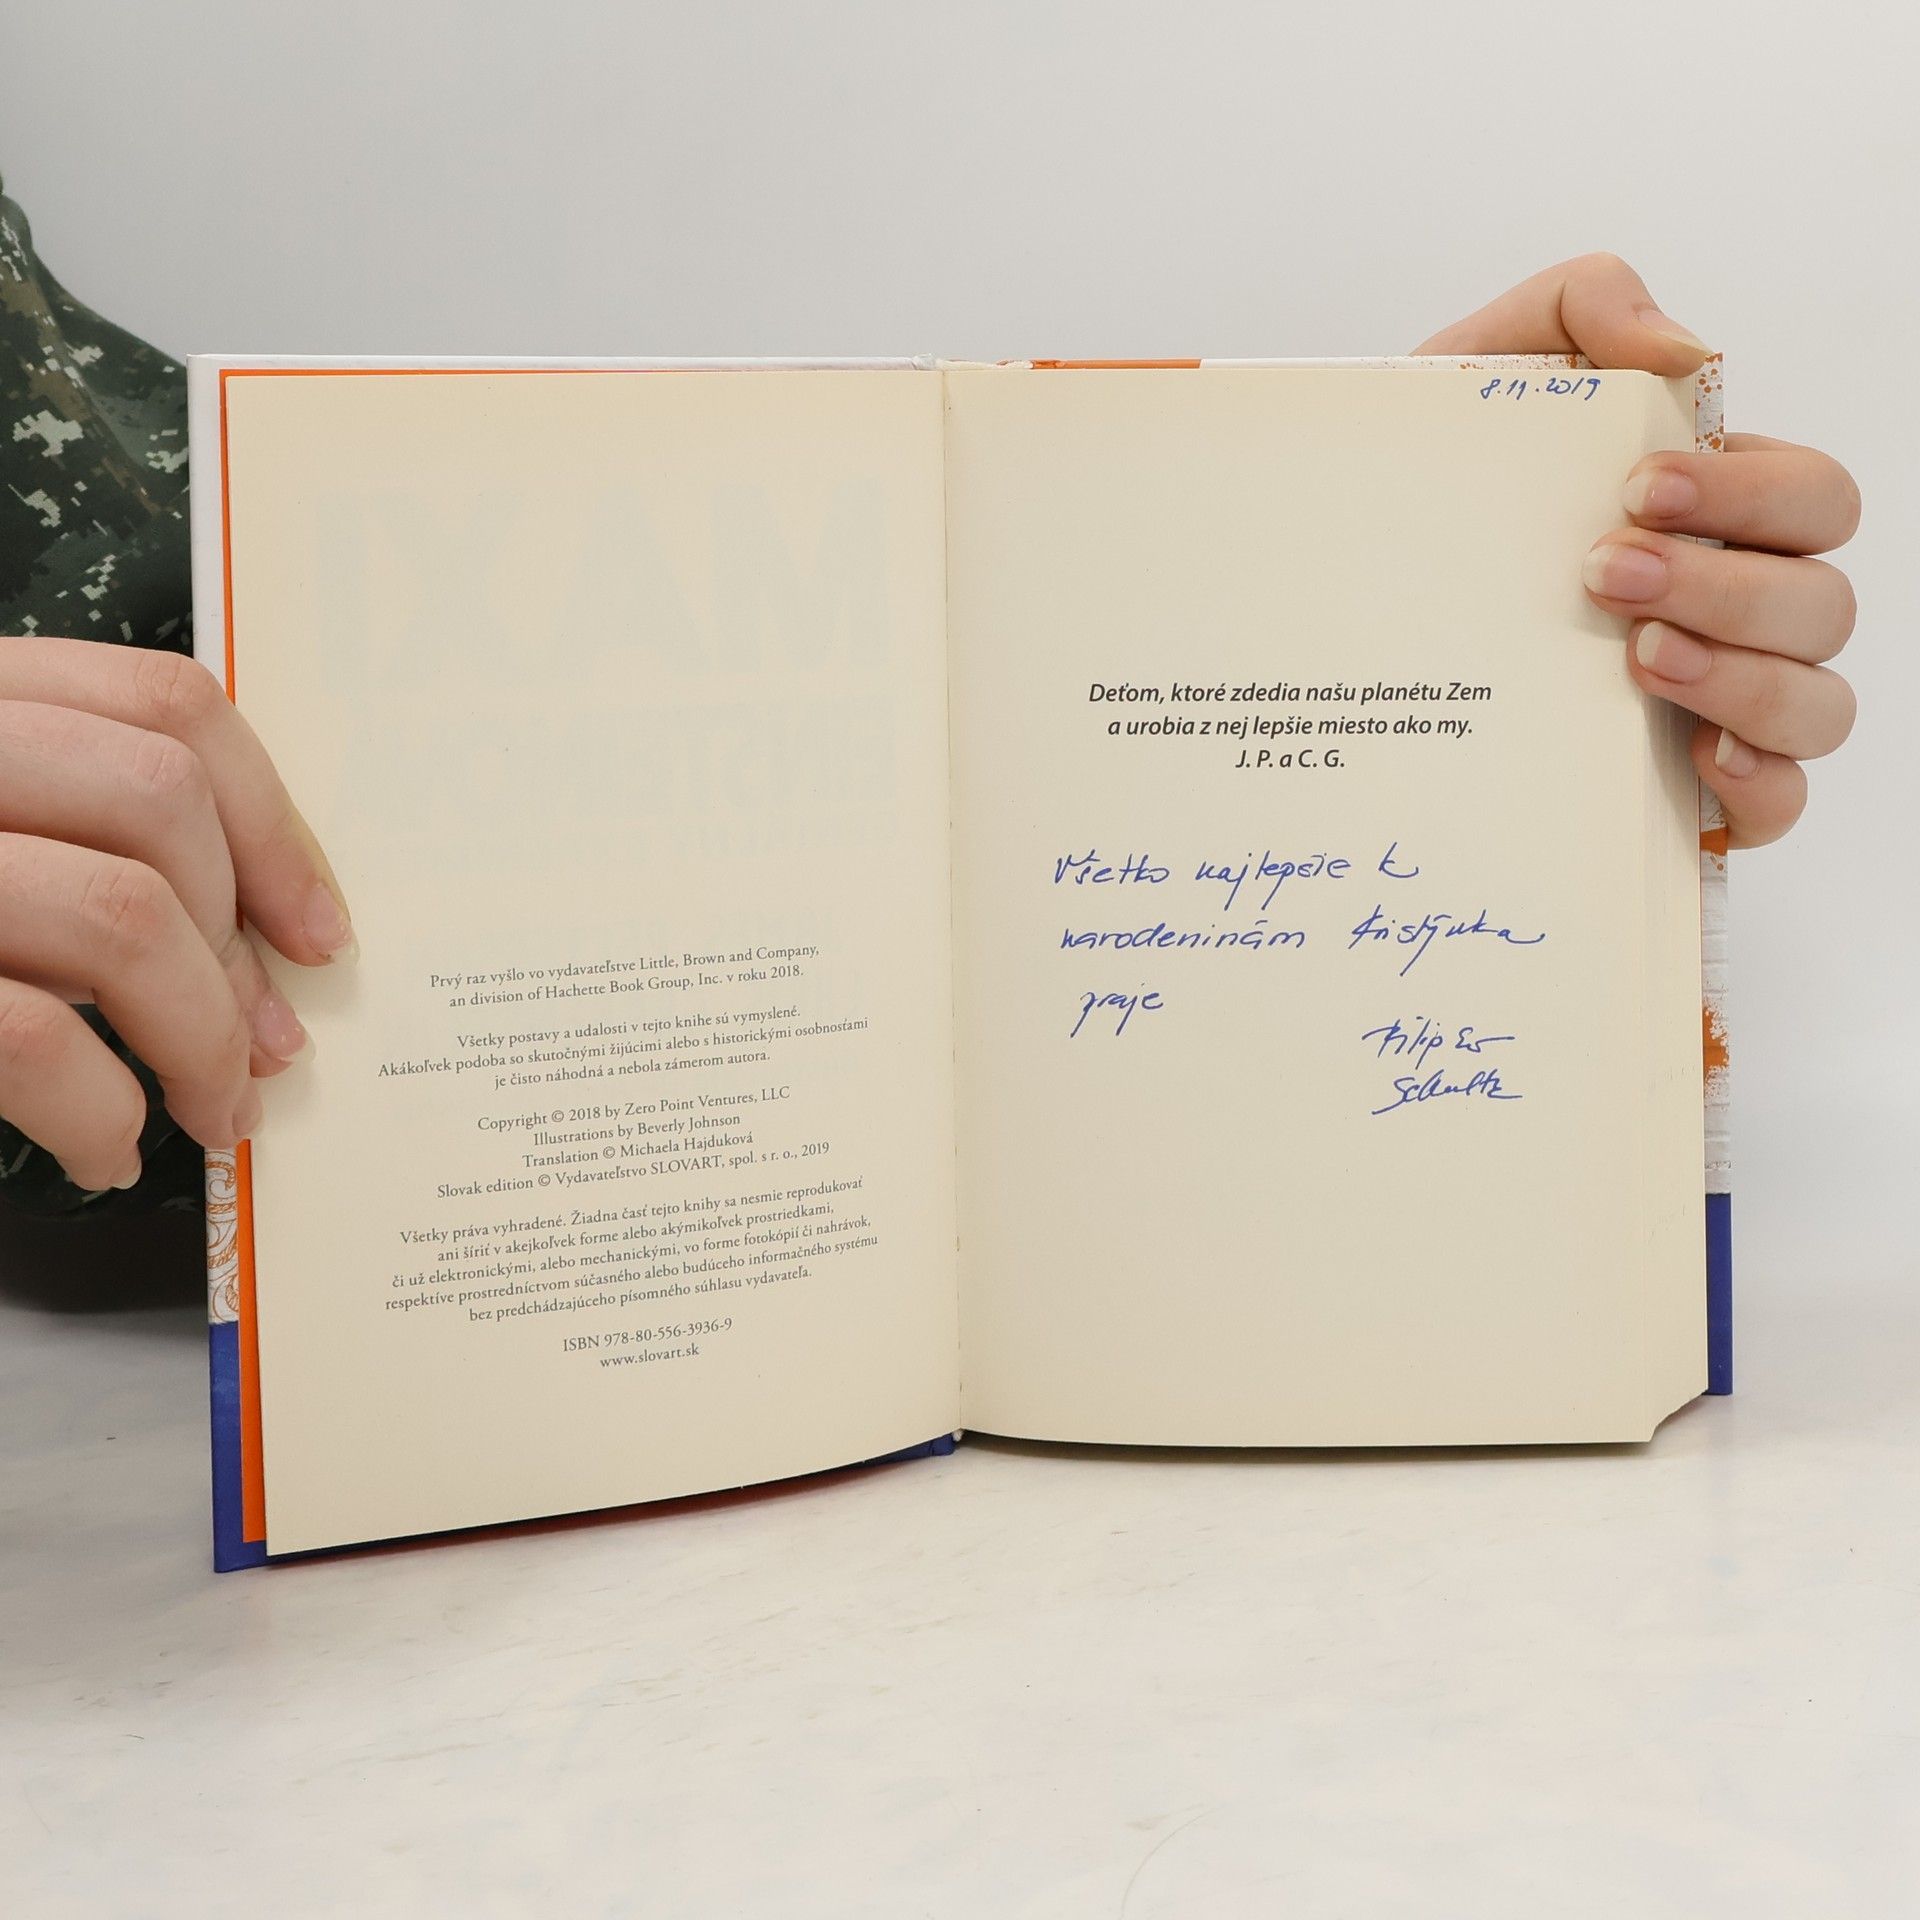 Prvý raz vyšlo vo vydavateľstve Little, Brown and Company,
an division of Hachette Book Group, Inc. v roku 2018.
Všetky postavy a udalosti v tejto knihe sú vymyslené.
Akákoľvek podoba so skutočnými žijúcimi alebo s historickými osobnosťami
je čisto náhodná a nebola zámerom autora.
Copyright © 2018 by Zero Point Ventures, LLC
Illustrations by Beverly Johnson
Translation © Michaela Hajduková
Slovak edition © Vydavateľstvo SLOVART, spol. s r. o., 2019
Všetky práva vyhradené. Žiadna časť tejto knihy sa nesmie reprodukovať
ani šíriť v akejkoľvek forme alebo akýmikoľvek prostriedkami,
či už elektronickými, alebo mechanickými, vo forme fotokópií či nahrávok,
respektíve prostredníctvom súčasného alebo budúceho informačného systému
bez predchádzajúceho písomného súhlasu vydavateľa.
ISBN 978-80-556-3936-9
www.slovart.sk
8.11.2019
Deťom, ktoré zdedia našu planétu Zem
a urobia z nej lepšie miesto ako my.
J. P. a C. G.
Všetko najlepšie k
narodeninám Kristýnka
praje
Filip
Schultz